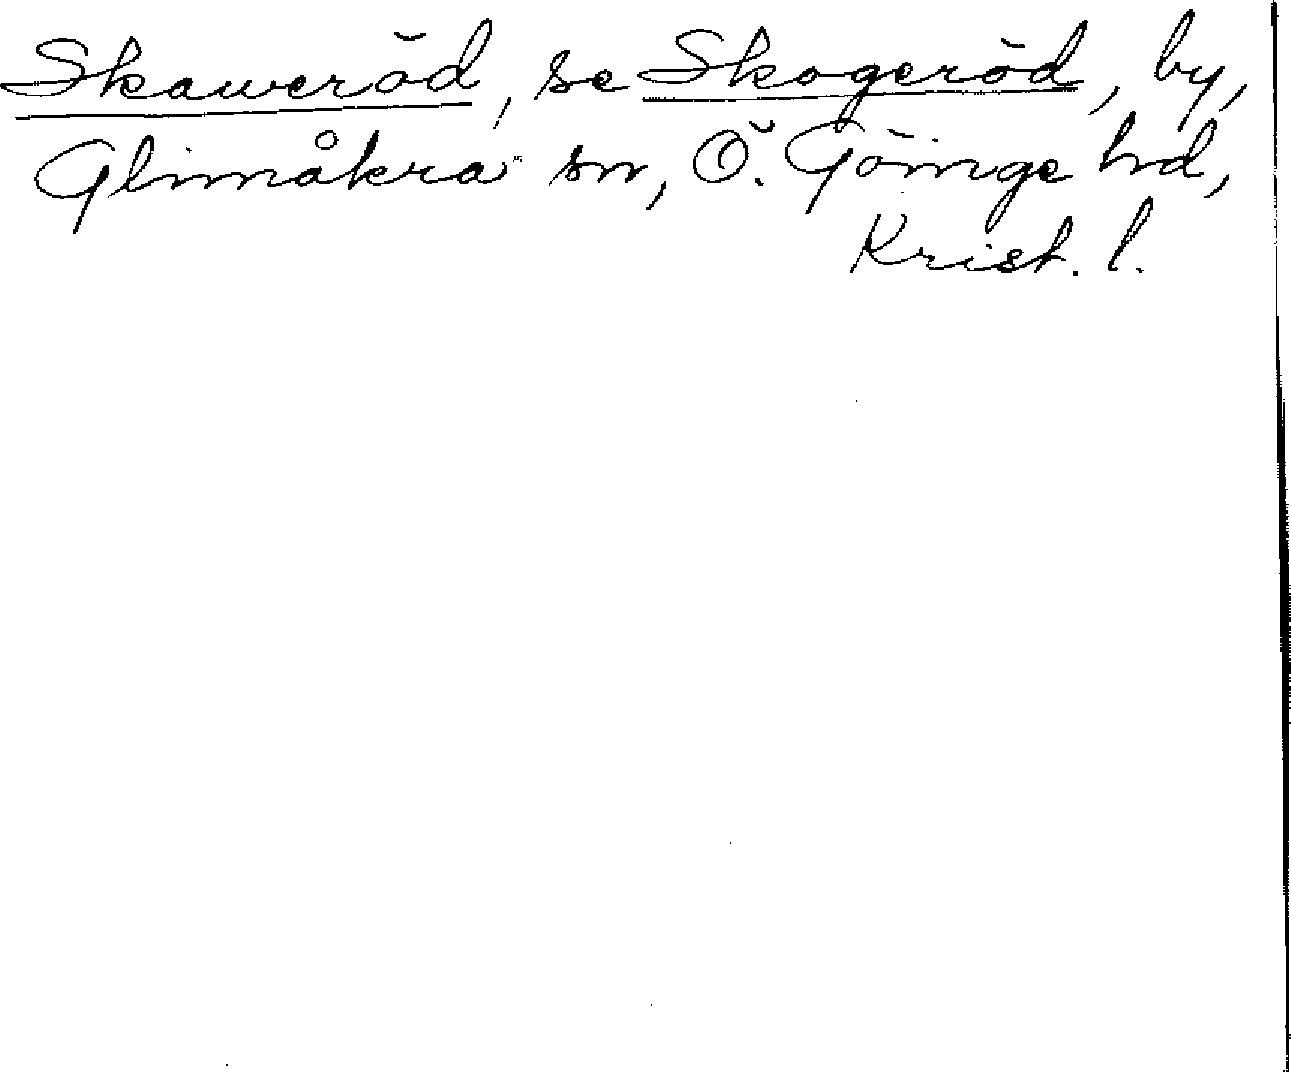 Skaweröd, se Skogeröd, by,
Glimåkra sn, Ö. Göinge hd,
Krist. l.